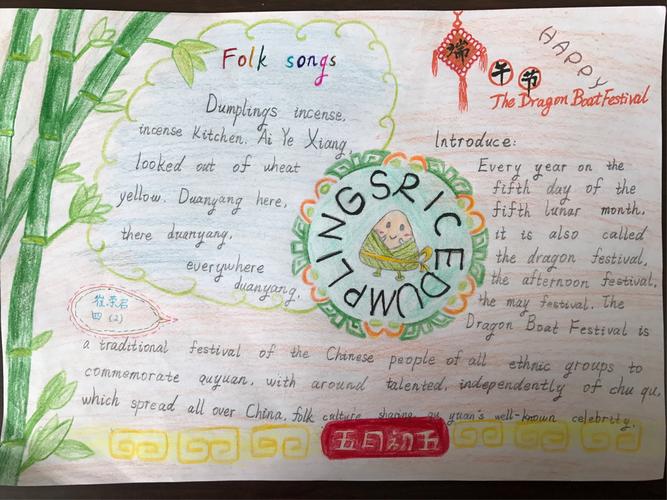 Folk songs
Dumplings incense,
incense Kitchen. Ai Ye Xiang,
looked out of wheat
yellow. Duanyang here,
there duanyang,
everywhere
duanyang.
四(2)
RICE DUMPLINGS
端午节
HAPPY
The Dragon Boat Festival
Introduce:
Every year on the
fifth day of the
fifth lunar month.
it is also called
the dragon festival,
the afternoon festival,
the may festival. The
Dragon Boat Festival is
a traditional festival of the Chinese people of all ethnic groups to
commemorate quyuan. with around talented, independently of chu qu,
which spread all over China, folk culture sharing qu yuan's well-known celebrity.
五月初五